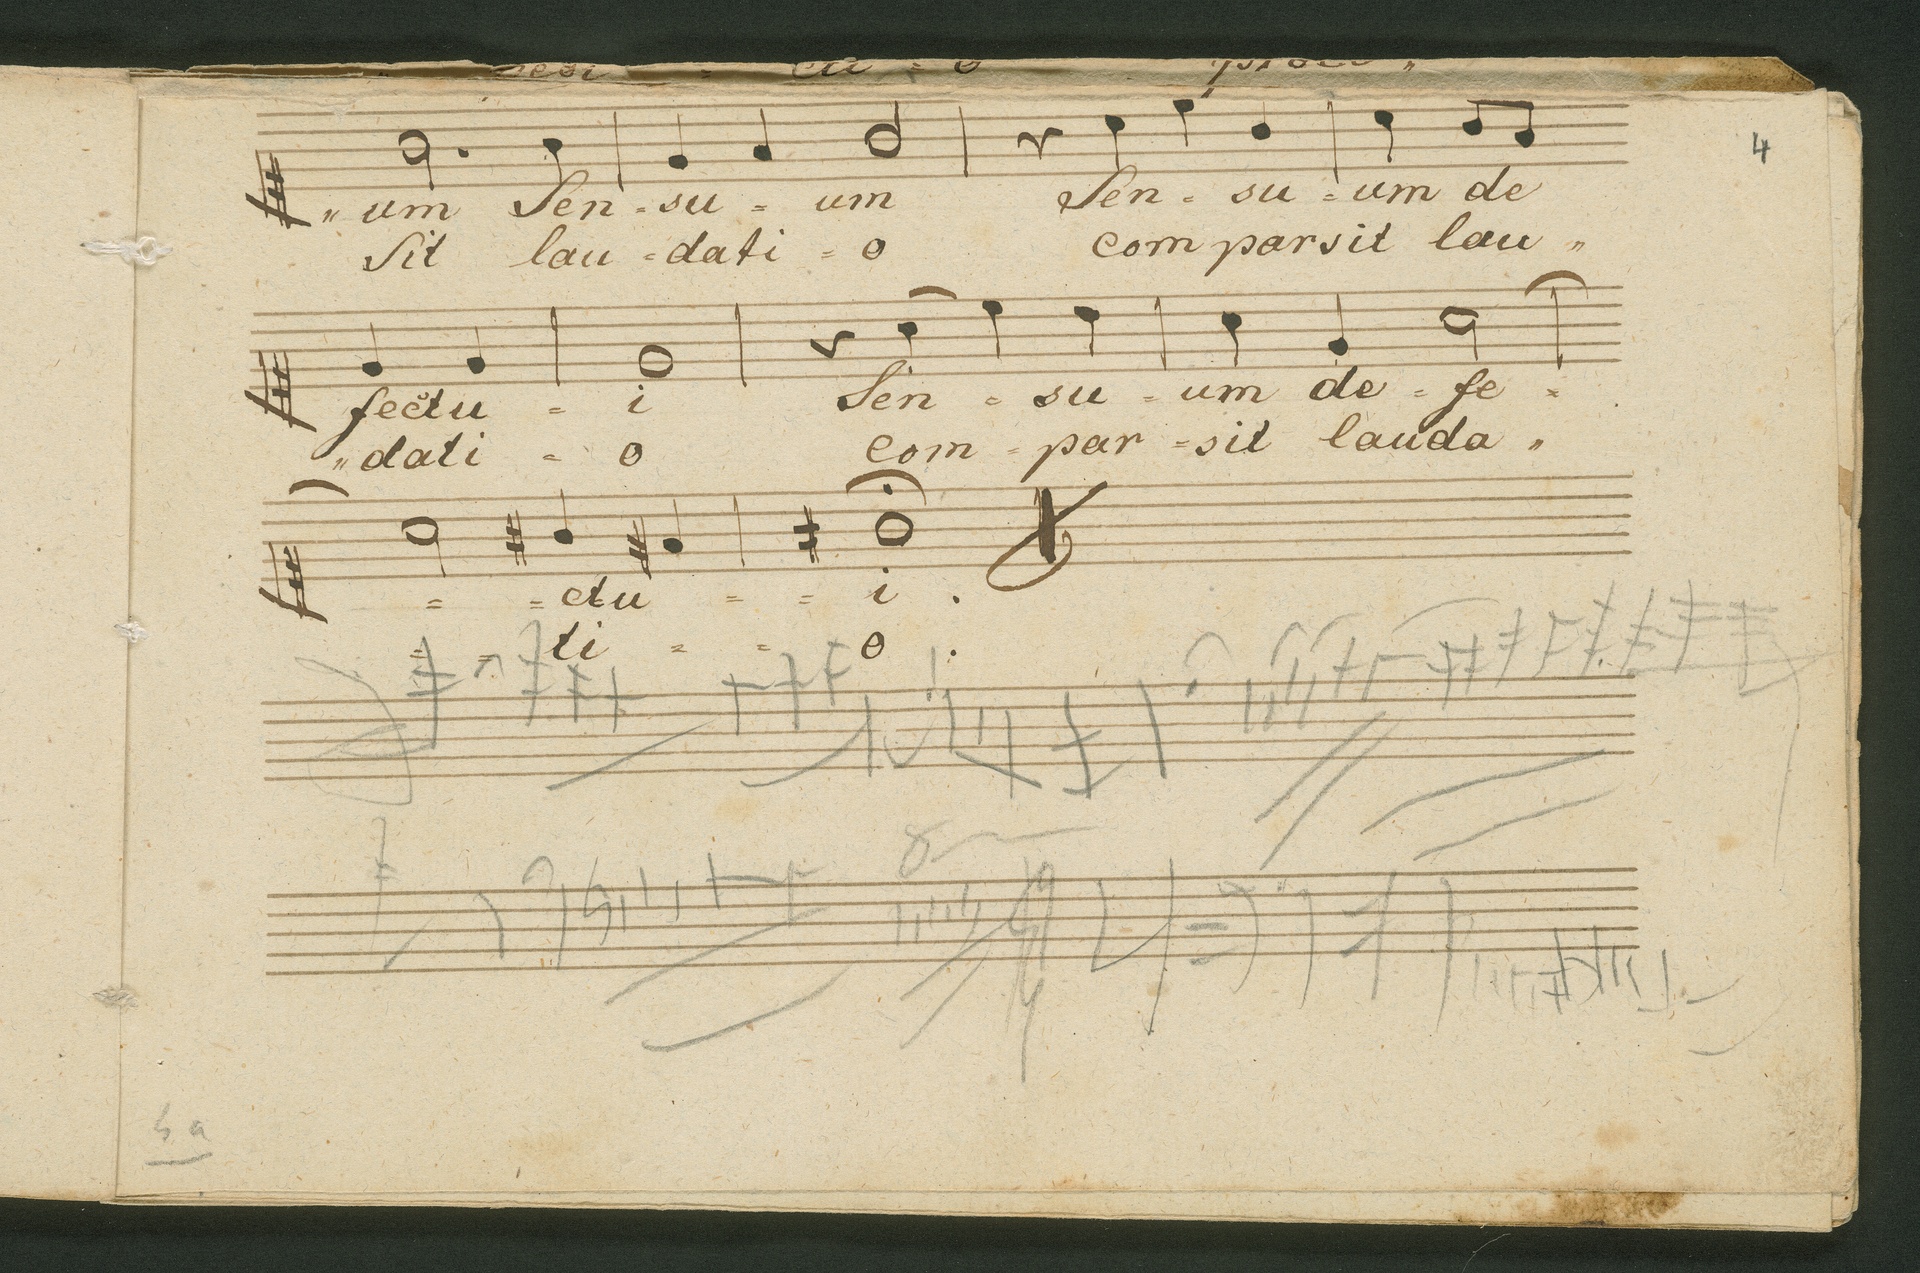 4
„ um Sen - su = um Sen = su = um de
Sit lau = dati = o com parsit lau „
fectu = i Sen = su = um de = fe =
„ dati = o com = par = sit lauda „
= = ctu = = i .
= = ti = = o .